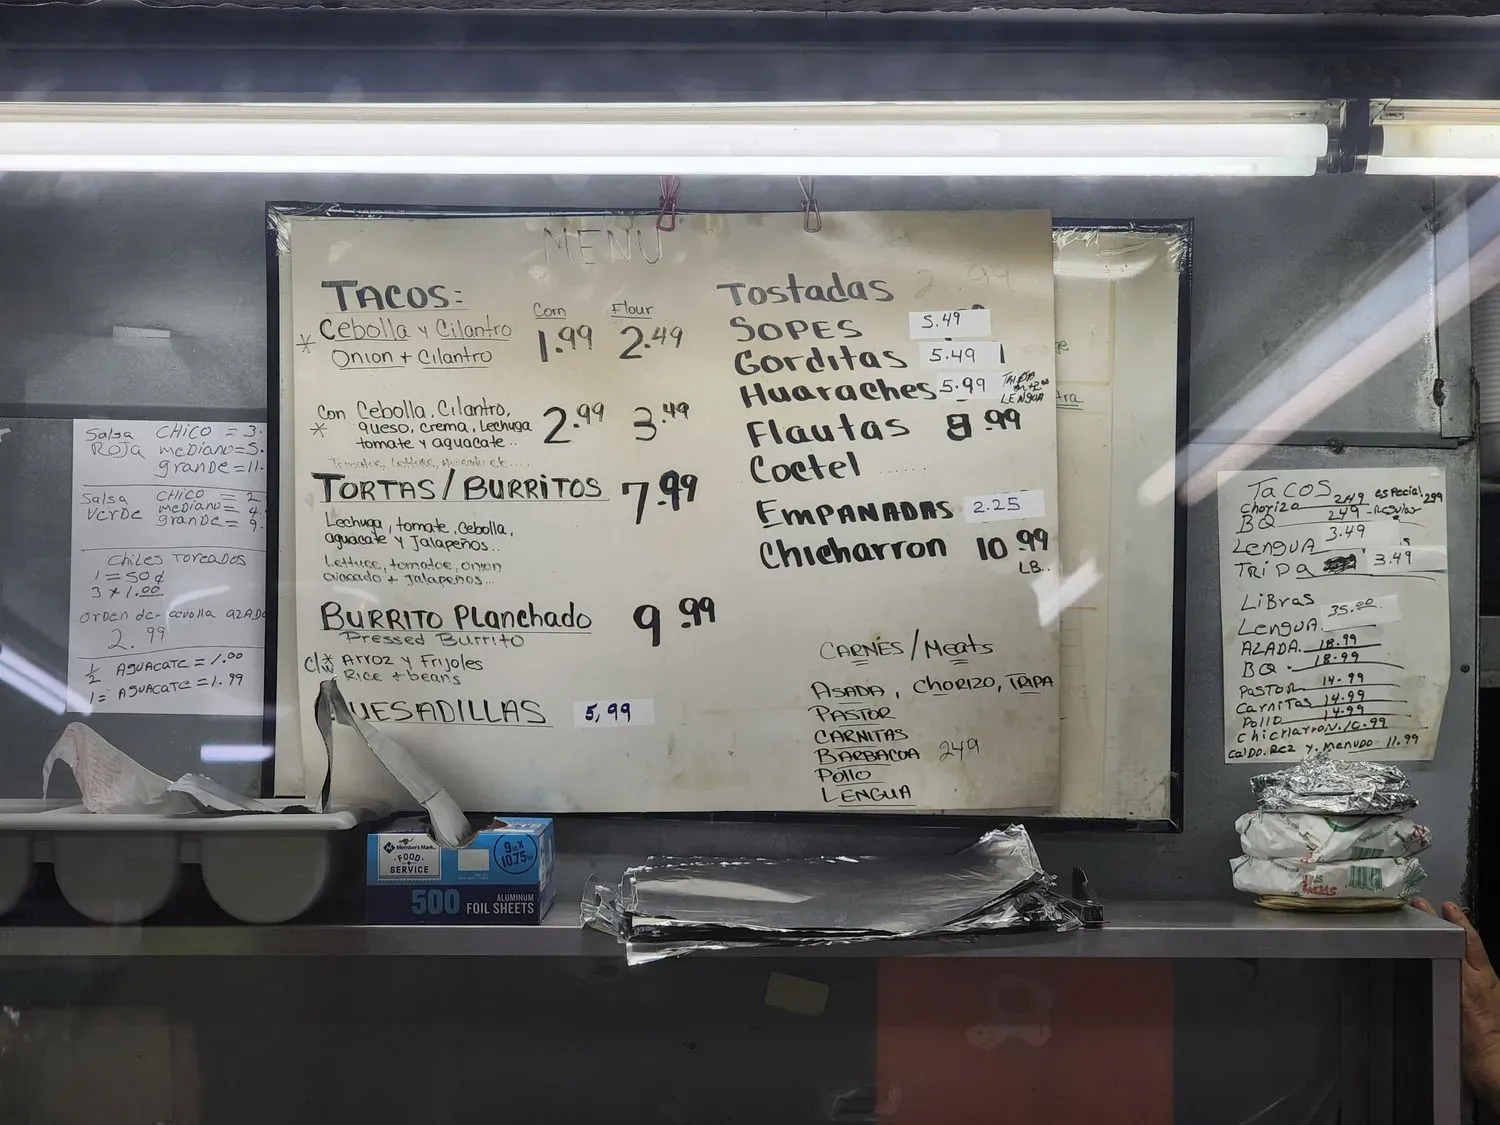 MENU
TACOS:
Corn Flour
* Cebolla y Cilantro 1.99 2.49
Onion + Cilantro
* Con Cebolla, Cilantro, 2.99 3.49
queso, crema, Lechuga
tomate y aguacate..
TORTAS/BURRITOS 7.99
Lechuga, tomate, cebolla,
aguacate y Jalapeños..
Lettuce, tomatoe, onion
avocado + Jalapeños...
BURRITO Planchado 9.99
Pressed Burrito
c/* Arroz y Frijoles
Rice + beans
UESADILLAS 5,99
Tostadas 2 99
SOPES 5.49
Gorditas 5.49
Huaraches 5.99
LENGUA
Flautas 8.99
Coctel ......
EMPANADAS 2.25
Chicharron 10.99
LB..
CARNES/Meats
ASADA, CHORIZO, TRIPA
PASTOR
CARNITAS
BARBACOA 249
Pollo
LENGUA
Salsa CHICO = 3.
ROJA meDiano=5.
granDe=11.
Salsa CHICO = 2.
VerDe meDiano= 4.
granDe= 9.
CHiles TOREADOS
1 = 50¢
3 * 1.00
orDen de cevolla AZADA
2.99
½ AGUACATE = 1.00
1= AGUACATE = 1.99
TACOS
Chorizo 249 especial 299
BQ 249 - Regular
LENGUA 3.49
TRIPA 3.49
LiBRAS
LENGUA 35.00
AZADA 18.99
BQ. 18.99
PASTOR 14.99
CARNITAS 14.99
POLLO 14.99
CHICHARRON. 10.99
CALDO. Rez y. Menudo 11.99
Member's Mark
FOOD
SERVICE
9in X
10.75in
500 ALUMINUM
FOIL SHEETS